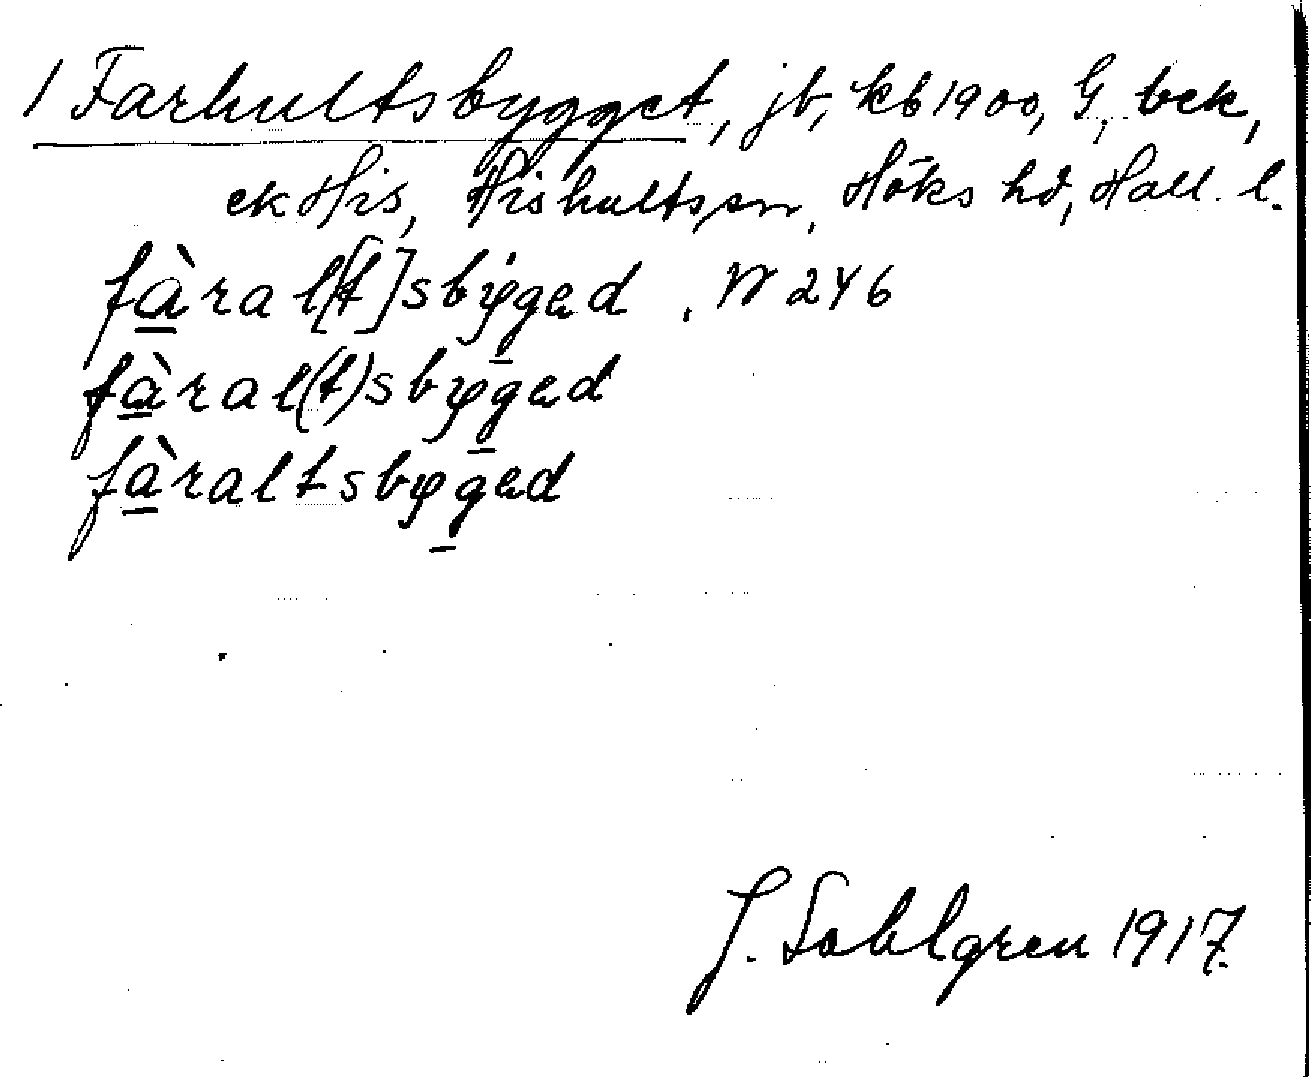 1 Farhultsbygget, jb, kb 1900, G, bek,
ek His, Hishults sn, Höks hd, Hall. l.
fàral[t]sbyged. W 246
fàral(t)sbyged
fàraltsbyged
J. Sahlgren 1917.